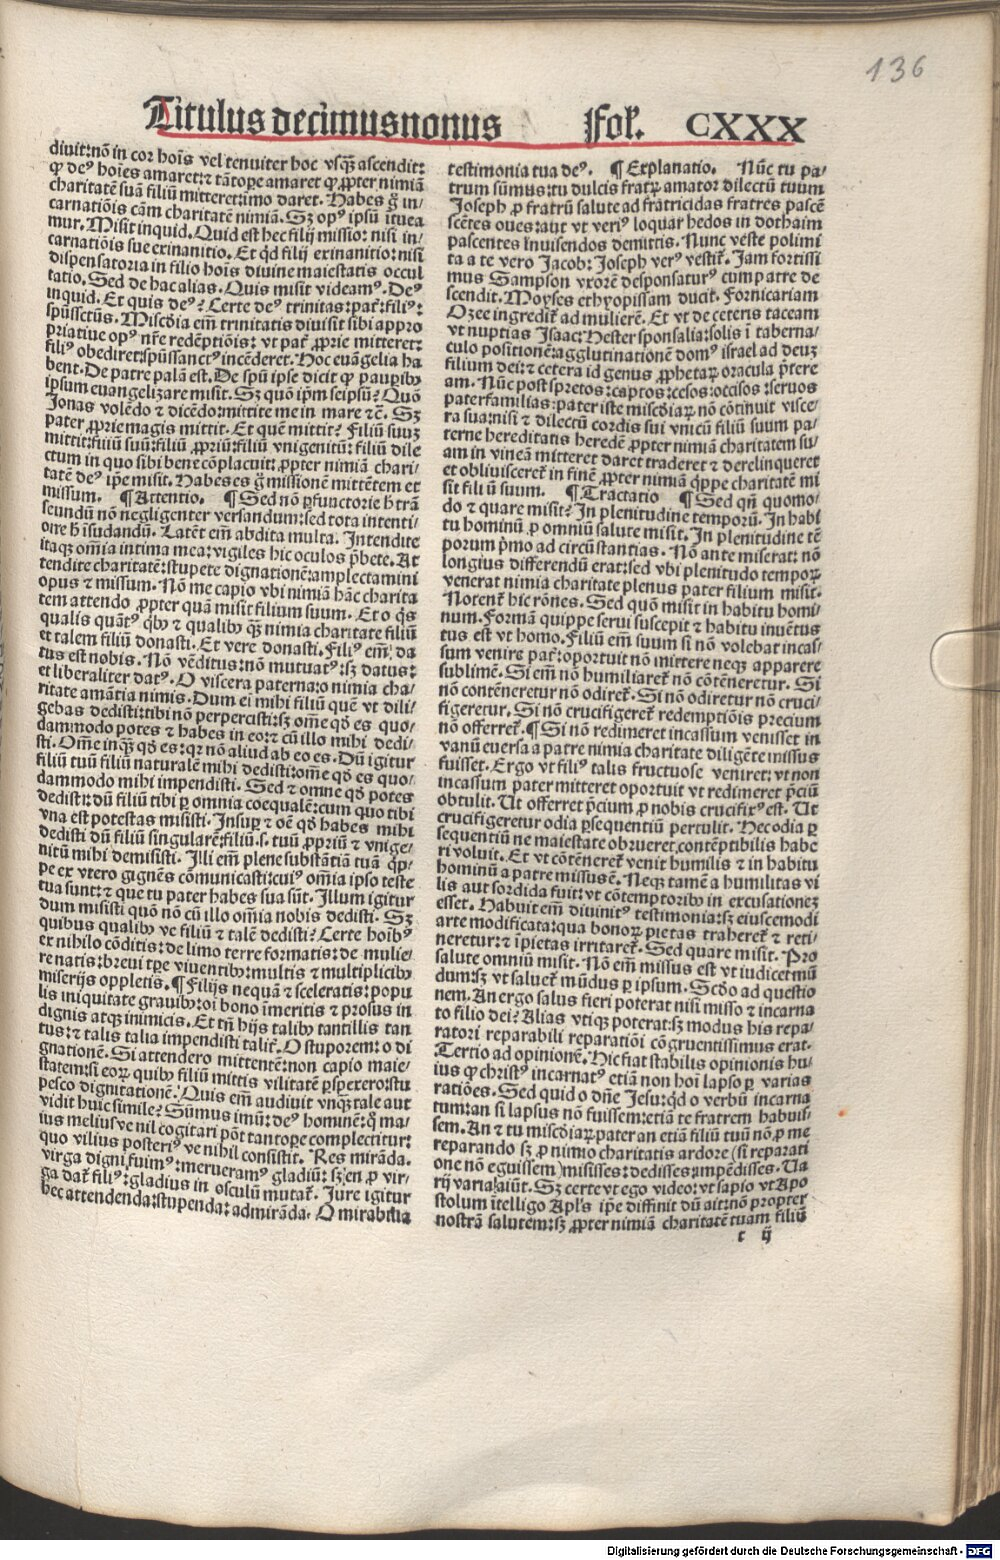 136
Titulus decimusnonus Fol. CXXX
diuit: nō in cor hoīs vel tenuiter hoc vsqꝫ ascendit:
ꝙ deꝰ hoīes amaret: ⁊ tātoꝑe amaret ꝙ ꝓpter nimiā
charitatē suā filiū mitteret: imo daret. Habes g̃ in/
carnatiōis cām charitatē nimiā. Sꝫ opꝰ ipsū ituea
mur. Misit inquid. Quid est hec filij missio: nisi in/
carnatiōis sue exinanitio. Et qd̄ filij exinanitio: nisi
dispensatoria in filio hoīs diuine maiestatis occul
tatio. Sed de hac alias. Quis misit videamꝰ. Deꝰ
inquid. Et quis deꝰ? Certe deꝰ trinitas: pat̄: filiꝰ:
spūssctūs. Miscd̄ia em̄ trinitatis diuisit sibi appro
priatiue opꝰ nr̄e redēptiōis: vt pat̄ ꝓprie mitteret:
filiꝰ obediret: spūssanctꝰ incēderet. Hoc euāgelia ha
bent. De patre palā est. De spū ipse dicit ꝙ paupibꝰ
ipsum euangelizare misit. Sꝫ quō ip̄m seipsū? Quō
Jonas volēdo ⁊ dicēdo: mittite me in mare ⁊c̄. Sꝫ
pater ꝓprie magis mittit. Et quē mittit? Filiū suuꝫ
mittit: filiū suū: filiū ꝓpriū: filiū vnigenitū: filiū dile
ctum in quo sibi bene cōplacuit: ꝓpter nimiā chari/
tatē deꝰ ip̄e misit. Habes es g̃ missionē mittētem et
missum. ¶ Attentio. ¶ Sed nō ꝑfunctorie h̄ trā
seundū nō negligenter versandum: sed tota intenti/
one h̄ īsudandū. Latēt em̄ abdita multa. Intendite
itaqꝫ om̄ia intima mea: vigiles hic oculos p̄bete. At
tendite charitatē: stupete dignationē: amplectamini
opus ⁊ missum. Nō me capio vbi nimiā hāc charita
tem attendo ꝓpter quā misit filium suum. Et o q̄s
qualis quātꝰ qͥbꝰ ⁊ qualibꝰ qͣꝫ nimia charitate filiū
et talem filiū donasti. Et vere donasti. Filiꝰ em̄ da
tus est nobis. Nō vēditus: nō mutuatꝰ: sꝫ datus:
et liberaliter datꝰ. O viscera paterna: o nimia cha/
ritate amātia nimis. Dum ei mihi filiū quē vt dili/
gebas dedisti: tibi nō peꝑcisti: sꝫ om̄e qd̄ es quo/
dammodo potes ⁊ habes in eo: ⁊ cū illo mihi dedi/
sti. Om̄e inqͣꝫ qd̄ es: qꝛ nō aliud ab eo es. Dū igitur
filiū tuū filiū naturalē mihi dedisti: om̄e qd̄ es quo/
dammodo mihi impendisti. Sed ⁊ omne qd̄ potes
dedisti: dū filiū tibi ꝑ omnia coequalē: cum quo tibi
vna est potestas misisti. Insuꝑ ⁊ oē qd̄ habes mihi
dedisti dū filiū singularē: filiū .s. tuū ꝓpriū ⁊ vnige/
nitū mihi demisisti. Illi em̄ plene substātiā tuā qͥp/
pe ex vtero gignēs cōmunicasti: cuiꝰ om̄ia ipso teste
tua sunt: ⁊ que tu pater habes sua sūt. Illum igitur
dum misisti quō nō cū illo om̄ia nobis dedisti. Sꝫ
quibus qualibꝰ ve filiū ⁊ talē dedisti? Certe hoībꝰ
ex nihilo cōditis: de limo terre formatis: de mulie/
re natis: breui tꝑe viuentibꝰ: multis ⁊ multiplicibꝰ
miserijs oppletis. ¶ Filijs nequā ⁊ sceleratis: popu
lis iniquitate grauibꝰ: oī bono īmeritis ⁊ prosus in
dignis atqꝫ inimicis. Et tn̄ hijs talibꝰ tantillis tan
tus: ⁊ talis talia impendisti talit̄. O stuporem: o di
gnationē. Si attendero mittentē: non capio maie/
statem: si eoꝝ quibꝰ filiū mittis vilitatē ꝑspexero: stu
pesco dignitationē. Quis em̄ audiuit vnqͣꝫ tale aut
vidit huic simile? Sūmus imū: deꝰ hominē: qͥ ma/
ius meliusve nil cogitari pōt tantoꝑe complectitur:
quo vilius posteriꝰ ve nihil consistit. Res mirāda.
virga digni fuimꝰ: merueramꝰ gladiū: sꝫ en ꝓ vir/
ga dat̄ filiꝰ: gladius in osculū mutat̄. Jure igitur
hec attendenda: stupenda: admirāda. O mirabilia
testimonia tua deꝰ. ¶ Explanatio. Nūc tu pa/
trum sūmus: tu dulcis fratꝝ amator dilectū tuum
Joseph ꝓ fratrū salute ad fratricidas fratres pascē
scētes oues: aut vt veriꝰ loquar hedos in dothaim
pascentes inuisendos demittis. Nunc veste polimi
ta a te vero Jacob: Joseph verꝰ vestit̄. Jam fortissi
mus Sampson vxorē desponsaturꝰ cum patre de
scendit. Moyses ethyopissam ducit. Fornicariam
Ozee ingredit̄ ad mulierē. Et vt de ceteris taceam
vt nuptias Isaac: Hester sponsalia: solis ī taberna/
culo positionē: agglutinationē domꝰ israel ad deuꝫ
filium dei: ⁊ cetera id genus ꝓphetaꝝ oracula p̄tere
am. Nūc post spretos: captos: cesos: occisos: seruos
paterfamilias: pater iste miscd̄iaꝝ nō cōtinuit visce/
ra sua: nisi ⁊ dilectū cordis sui vnicū filiū suum pa/
terne hereditatis heredē ꝓpter nimiā charitatem su/
am in vineā mitteret daret traderet ⁊ derelinqueret
et obliuisceret̄ in finē ꝓpter nimiā qͥppe charitatē mi
sit fili ū suum. ¶ Tractatio ¶ Sed qn̄ quomo/
do ⁊ quare misit? In plenitudine temporū. In habi
tu hominū ꝓ omniū salute misit. In plenitudine tē
porum pͥmo ad circūstantias. Nō ante miserat: nō
longius differendū erat: sed vbi plenitudo tempoꝝ
venerat nimia charitate plenus pater filium misit.
Notent̄ hic rōnes. Sed quō misit in habitu homi/
num. Formā quippe serui suscepit ⁊ habitu inuētus
tus est vt homo. Filiū em̄ suum si nō volebat incas/
sum venire pat̄: oportuit nō mittere neqꝫ apparere
sublimē. Si em̄ nō humiliaret̄ nō cōtēneretur. Si
nō contēneretur nō odiret̄. Si nō odiretur nō cruci/
figeretur. Si nō crucifigeret̄ redemptiōis precium
nō offerret̄. ¶ Si nō redimeret incassum venisset in
vanū euersa a patre nimia charitate diligēte missus
fuisset. Ergo vt filiꝰ talis fructuose veniret: vt non
incassum pater mitteret oportuit vt redimeret p̄ciū
obtulit. Ut offerret p̄cium ꝓ nobis crucifixꝰ est. Ut
crucifigeretur odia ꝑsequentiū pertulit. Hec odia ꝑ
sequentiū ne maiestate obrueret, contēptibilis habe
ri voluit. Et vt cōtēneret̄ venit humilis ⁊ in habitu
hominū a patre missusē. Neqꝫ tamē a humilitas vi
lis aut sordida fuit: vt cōtemptoribꝰ in excusationeꝫ
esset. Habuit em̄ diuinitꝰ testimonia: sꝫ eiuscemodi
arte modificata: qua bonoꝝ pietas traheret̄ ⁊ reti/
neretur: ⁊ īpietas irritaret̄. Sed quare misit. Pro
salute omniū misit. Nō em̄ missus est vt iudicet mū
dum: sꝫ vt saluet̄ mūdus ꝑ ipsum. Scd̄o ad questio
nem. An ergo salus fieri poterat nisi misso ⁊ incarna
to filio dei? Alias vtiqꝫ poterat: sꝫ modus his repa/
ratori reparabili reparatiōi cōgruentissimus erat.
Tertio ad opinionē. Hic fiat stabilis opinionis hu/
ius ꝙ christꝰ incarnatꝰ etiā non hoī lapso ꝑ varias
ratiōes. Sed quid o dn̄e Jesu: qd̄ o verbū incarna
tum: an si lapsus nō fuissem: etiā te fratrem habuis/
sem. An ⁊ tu miscd̄iaꝝ pater an etiā filiū tuū nō ꝓ me
reparando sꝫ ꝓ nimio charitatis ardore (si reparati
one nō eguissem) misisses: dedisses: impēdisses. Ua
rij varia aiūt. Sꝫ certe vt ego video: vt sapio vt Apo
stolum ītelligo Apl's ip̄e diffinit dū ait: nō propter
nostrā salutem: sꝫ ꝓpter nimiā charitatē tuam filiū
r ij
Digitalisierung gefördert durch die Deutsche Forschungsgemeinschaft - DFG